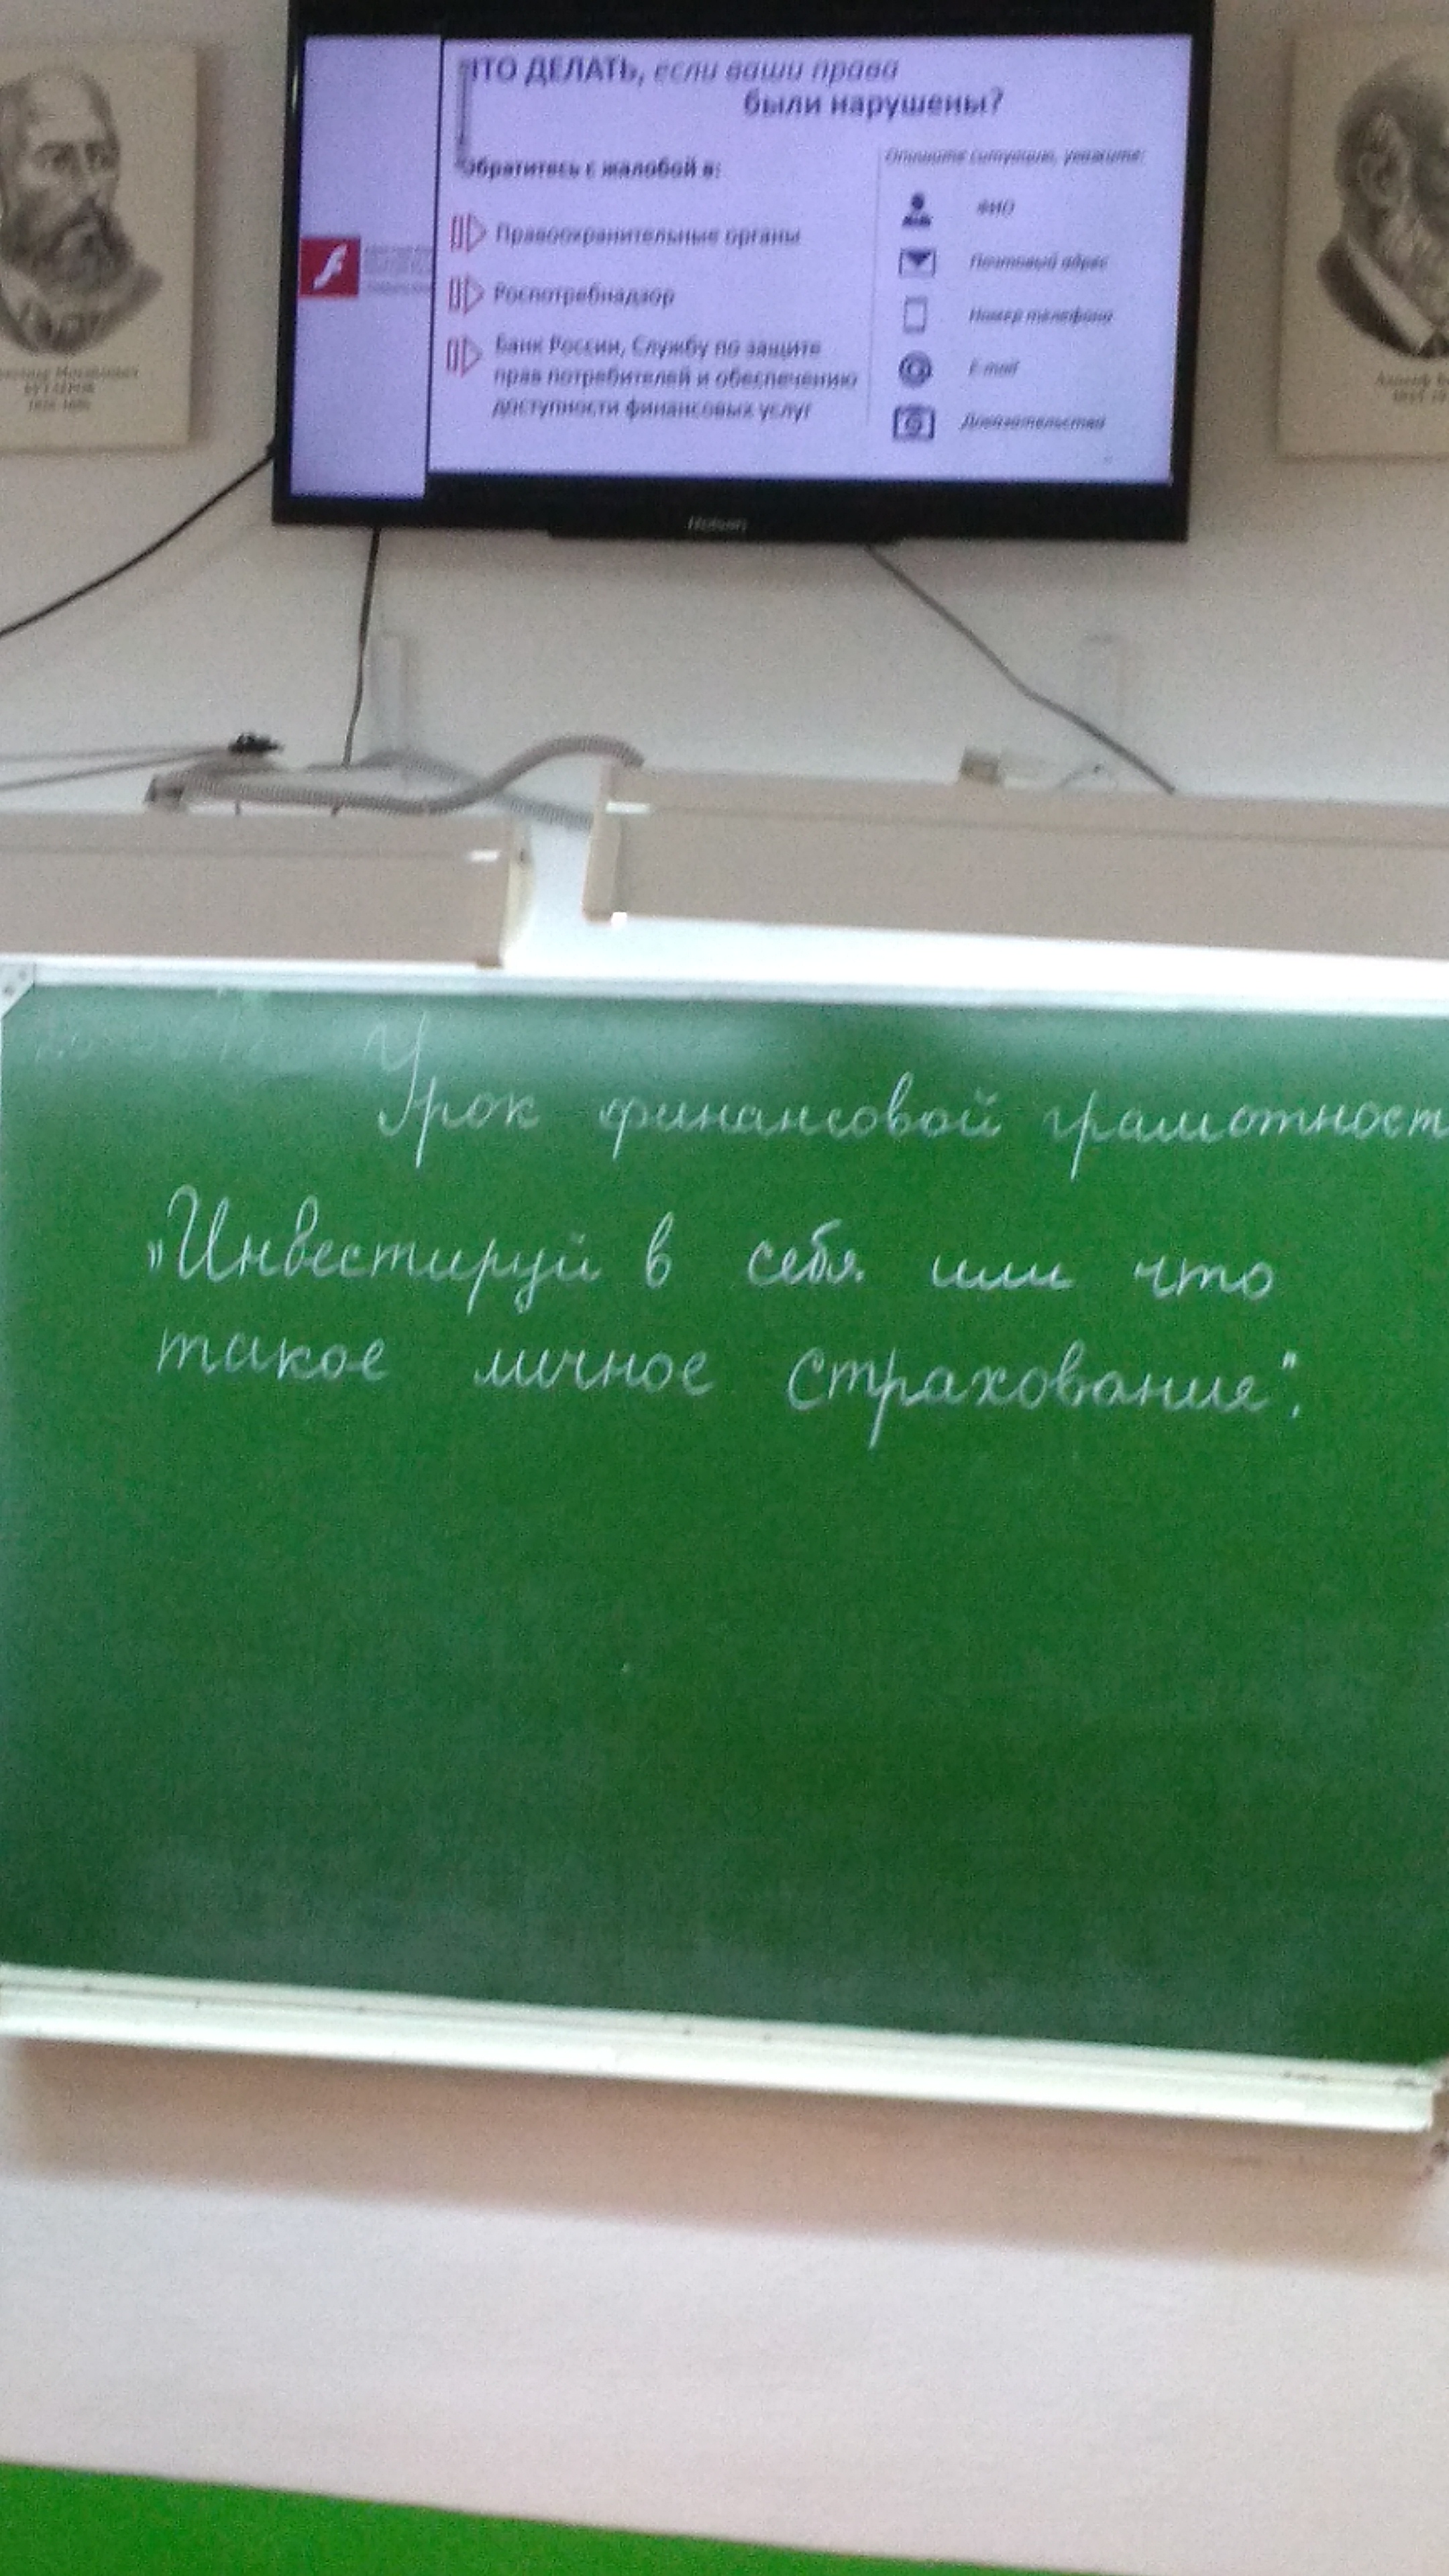 ЧТО ДЕЛАТЬ, если ваши права
были нарушены?
Обратитесь с жалобой в:
Правоохранительные органы
Роспотребнадзор
Банк России, Службу по защите
прав потребителей и обеспечению
доступности финансовых услуг
Опишите ситуацию, укажите:
ФИО
Почтовый адрес
Номер телефона
E-mail
Доказательства
БУТЛЕРОВ
Урок финансовой грамотност
„Инвестируй в себя или что
такое личное страхование“.